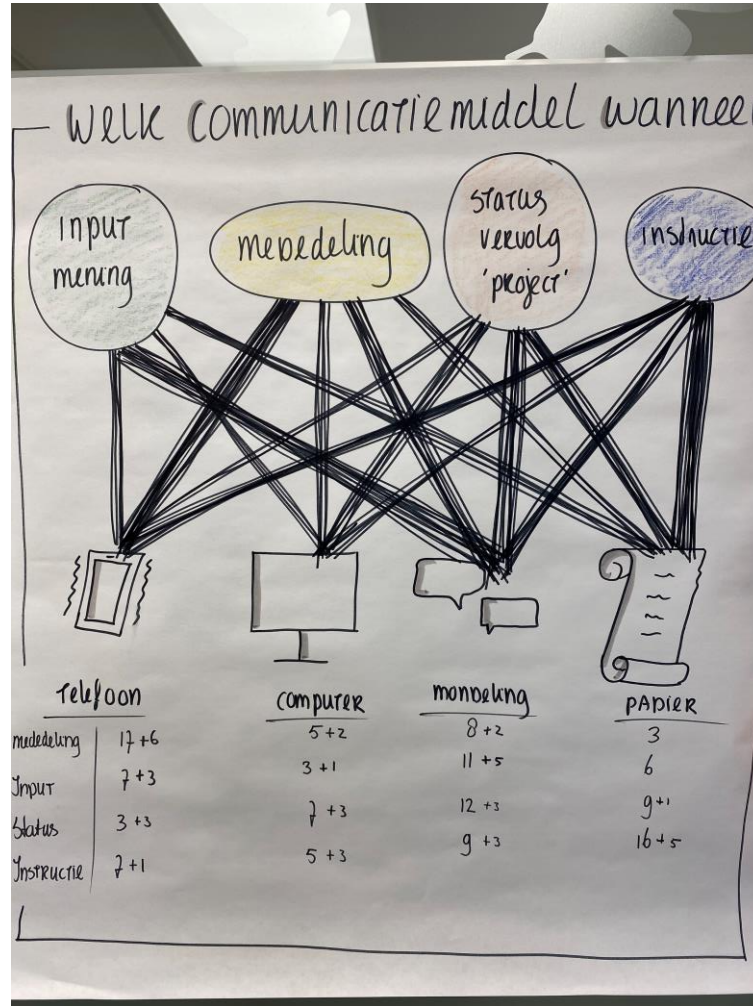 Welk communicatiemiddel wannee
input
mening
mededeling
status
vervolg
'project'
instructie
Telefoon
computer
mondeling
papier
mededeling 17+6 5+2 8+2 3
Input 7+3 3+1 11+5 6
Status 3+3 7+3 12+3 9+1
Instructie 7+1 5+3 9+3 16+5